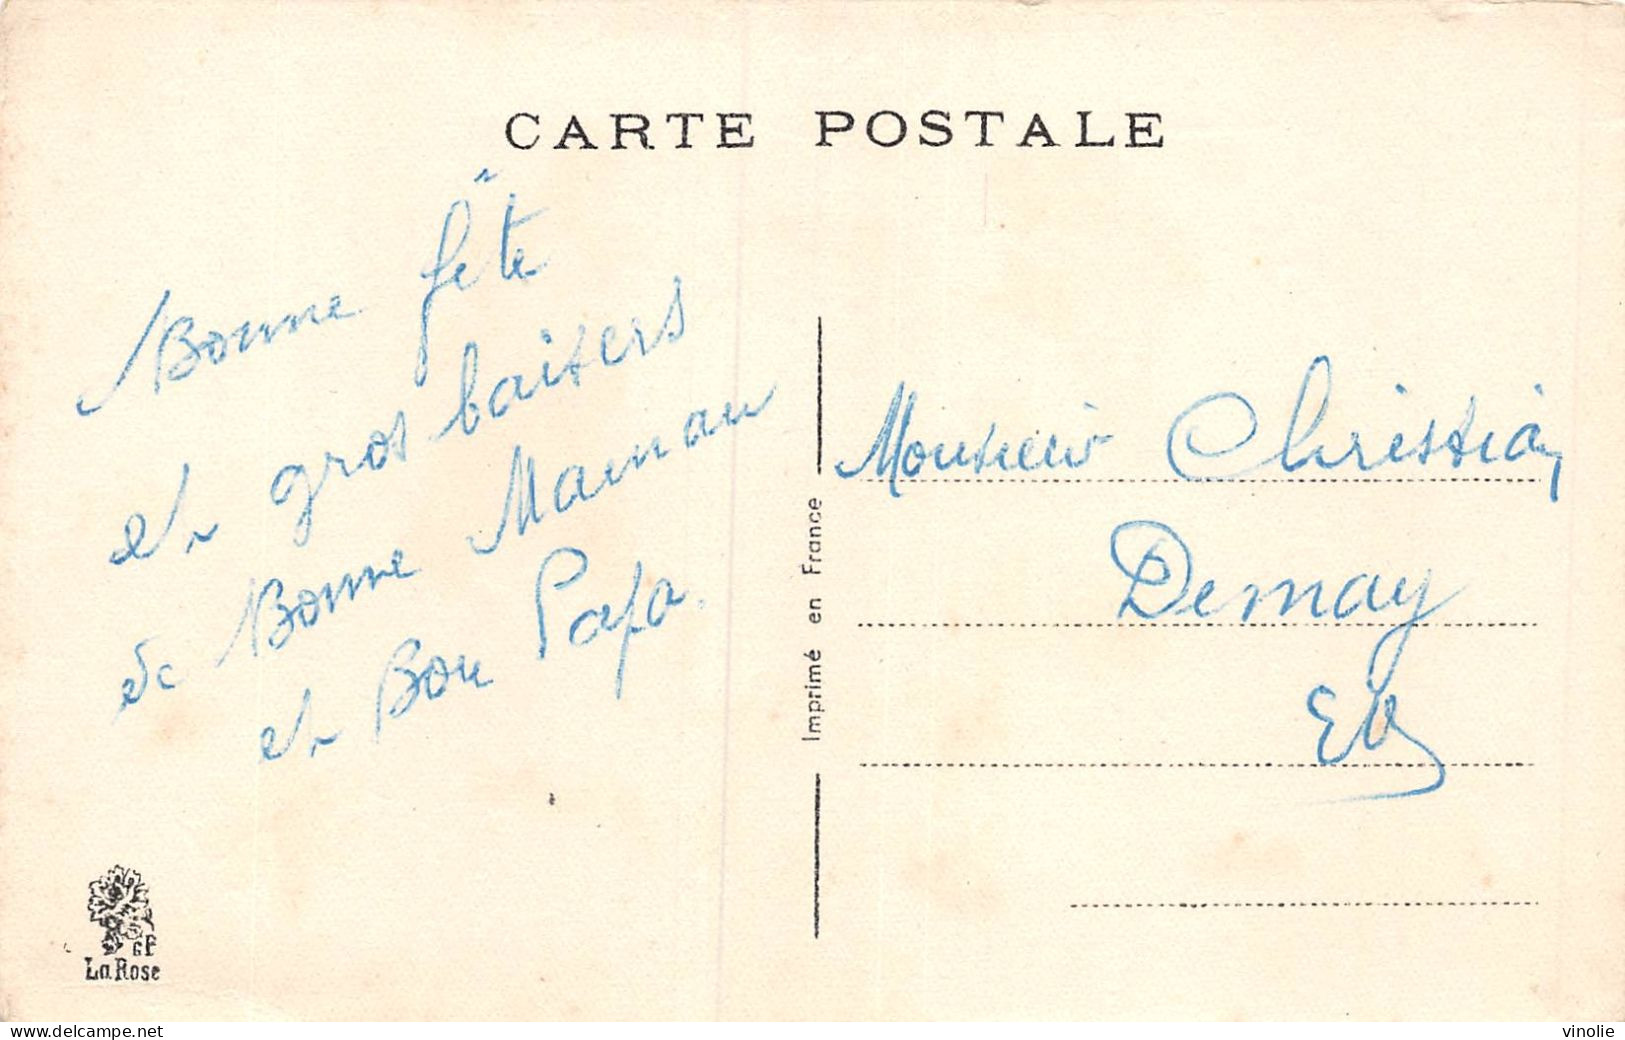 CARTE POSTALE
Bonne fête
et gros baisers
de Bonne Maman
et Bon Papa.
Imprimé en France
Monsieur Christian
Demay
GF
La Rose
www.delcampe.net
vinolie